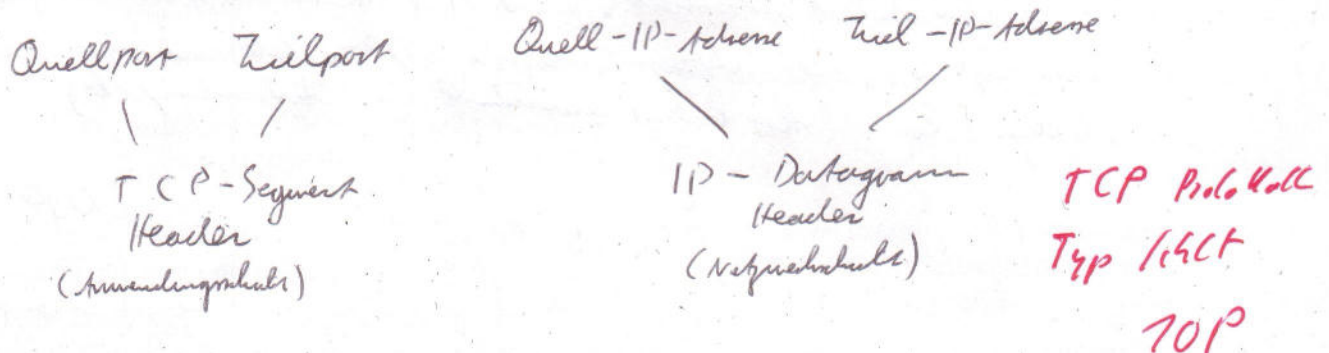 Quellport Zielport
TCP-Segment
Header
(Anwendungsschicht)
Quell-IP-Adresse Ziel-IP-Adresse
IP-Datagramm
Header
(Netzwerkschicht)
TCP Protokoll
Typ fehlt
10P